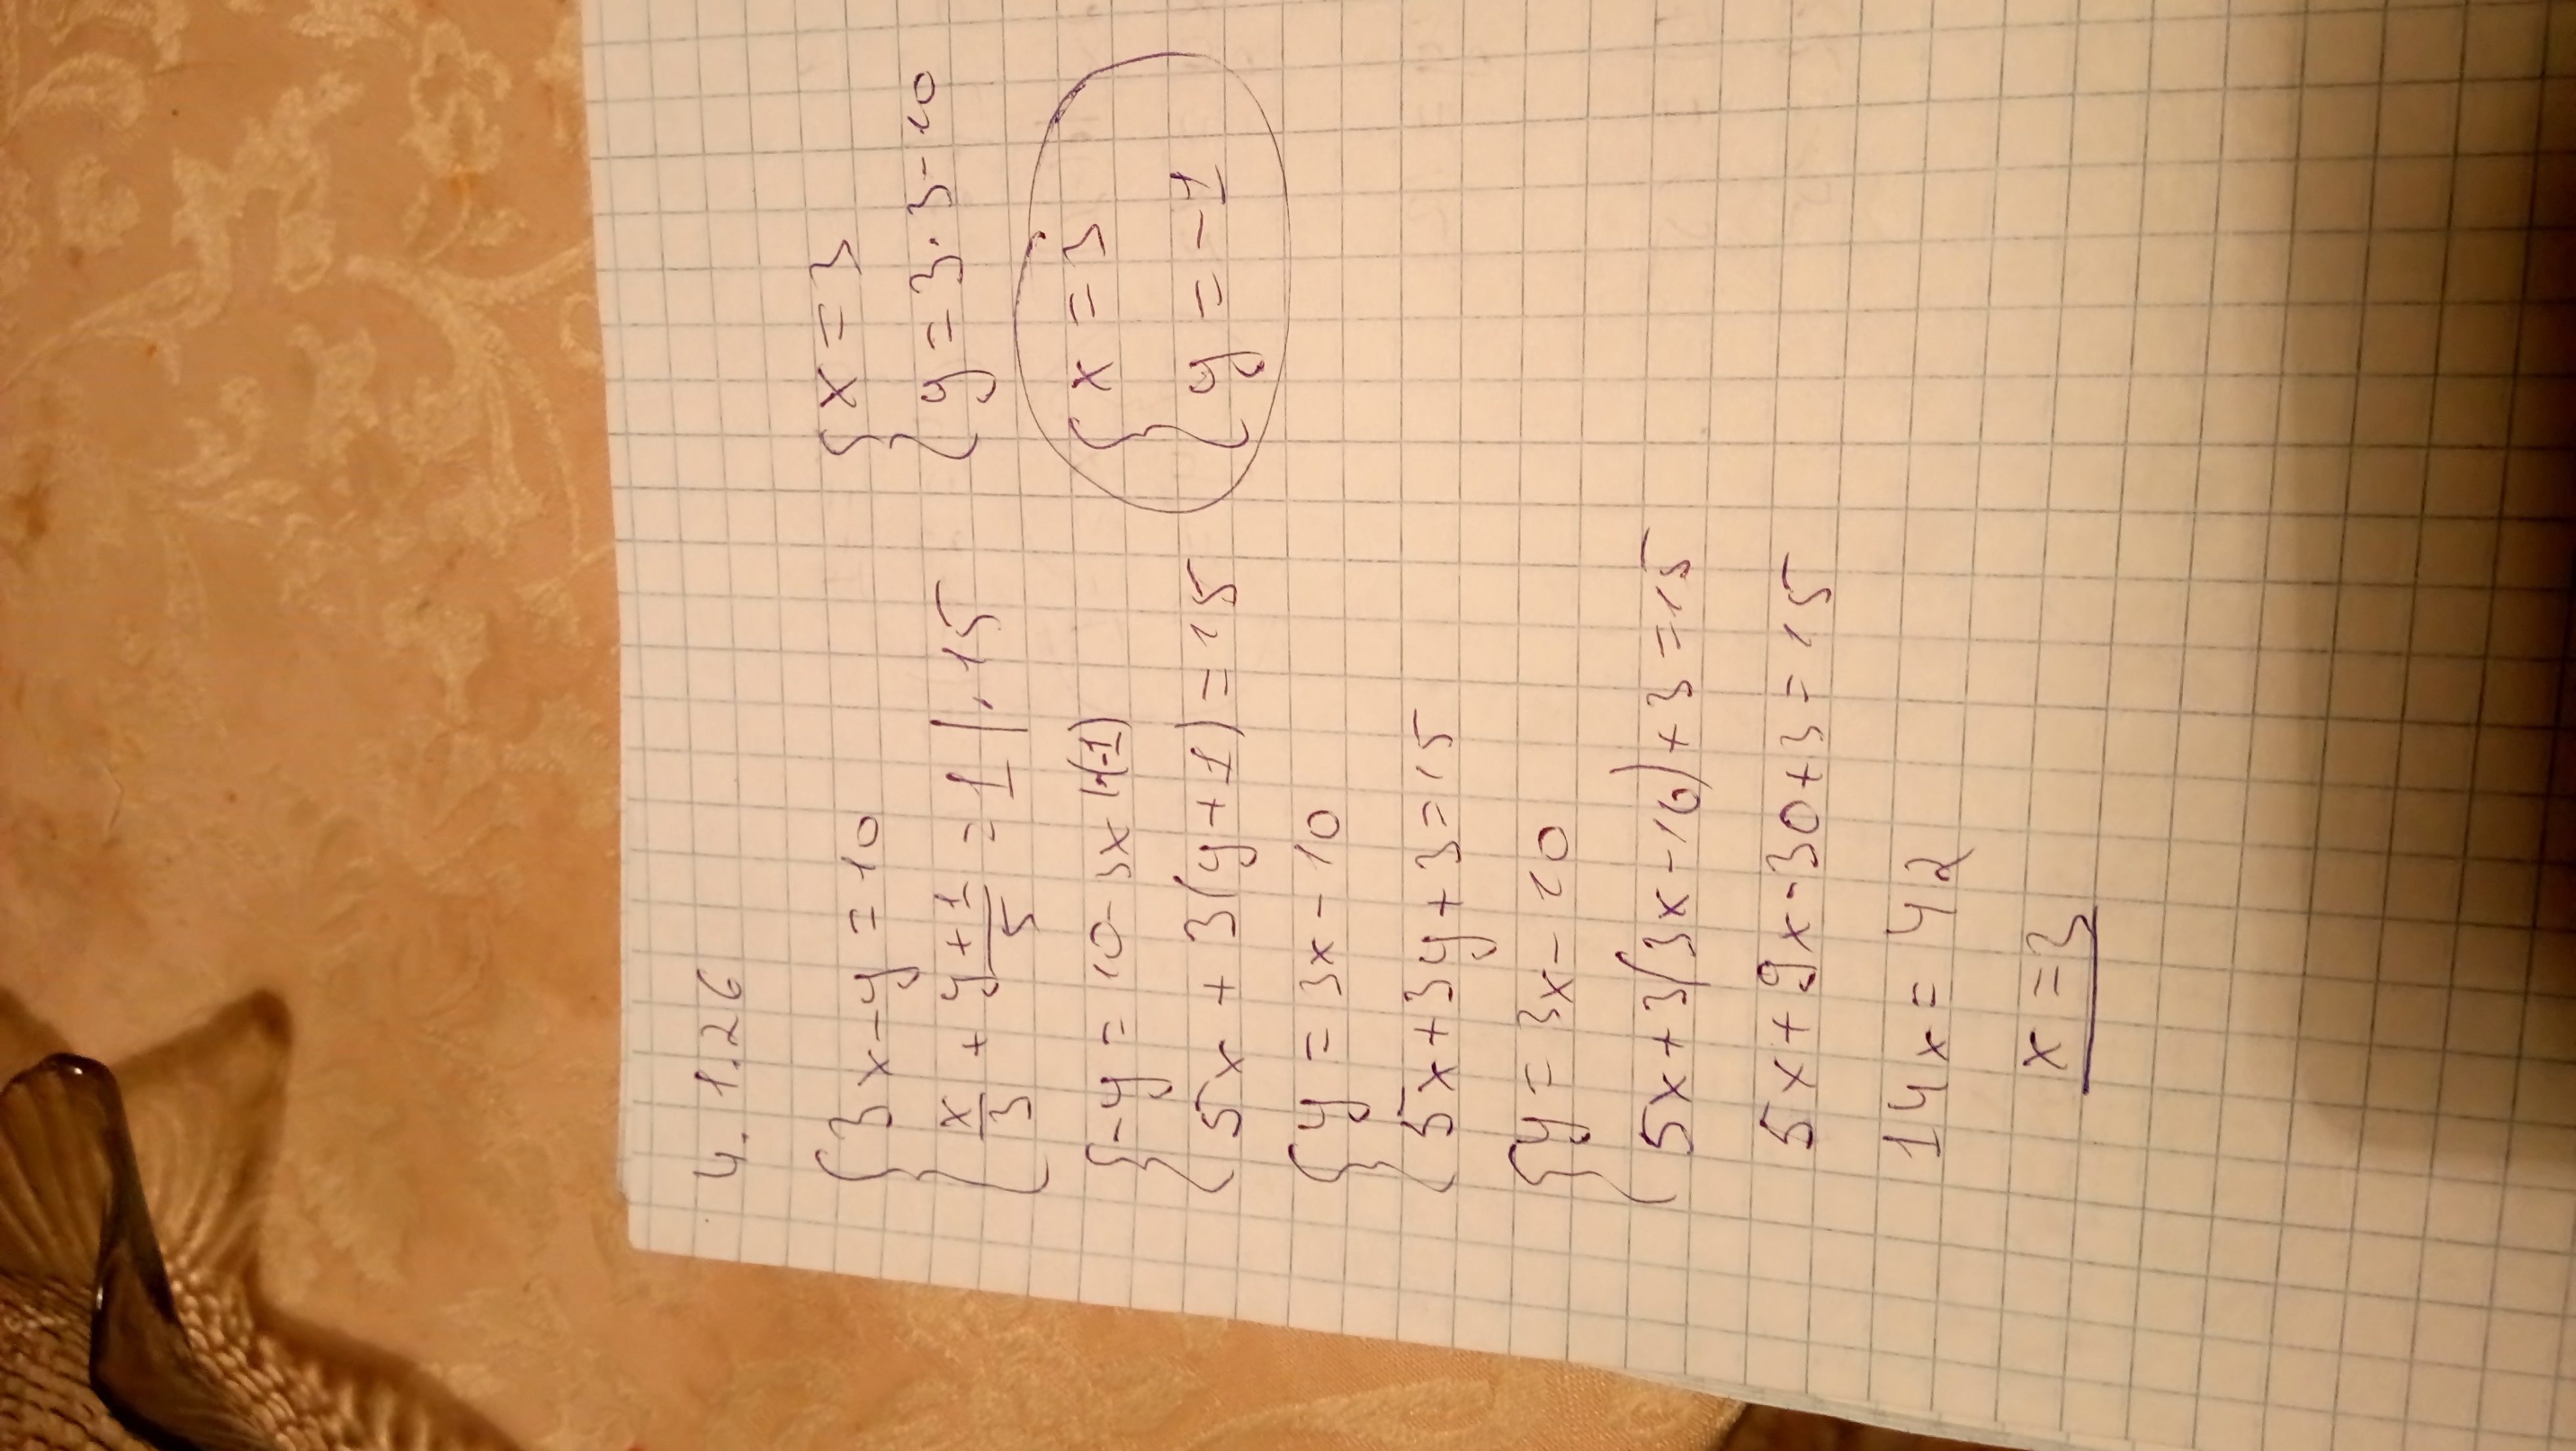 4. 1.26
{ 3x-y=10
x/3 + y+1/5 = 1 | · 15
{ -y = 10-3x |·(-1)
5x + 3(y+1) = 15
{ y = 3x - 10
5x+3y+3=15
{ y = 3x-10
5x+3(3x-10)+3=15
5x+9x-30+3=15
14x = 42
x=3
{ x=3
y=3·3-10
{ x=3
y=-1